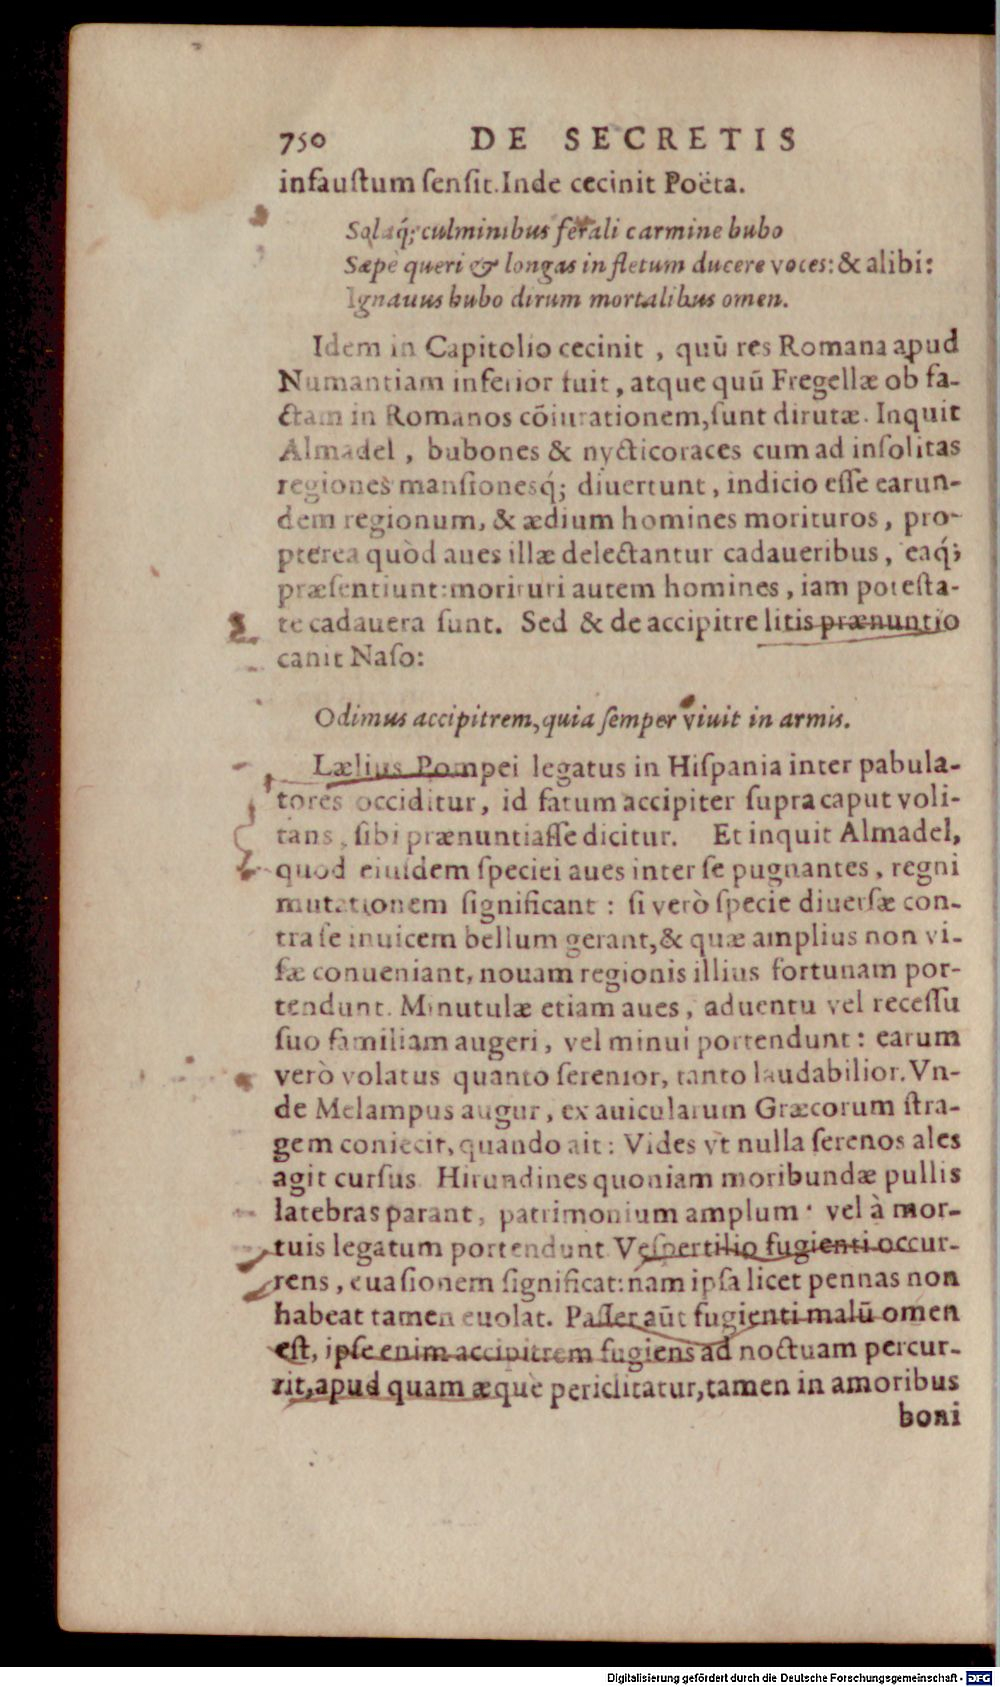 750 DE SECRETIS
infauſtum ſenſit. Inde cecinit Poëta.
Solaq́; culminibus ferali carmine bubo
Sæpè queri & longas in fletum ducere voces: & alibi:
Ignauus bubo dirum mortalibus omen.
Idem in Capitolio cecinit, quū res Romana apud
Numantiam inferior fuit, atque quū Fregellæ ob fa-
ctam in Romanos cōiurationem, ſunt dirutæ. Inquit
Almadel, bubones & nycticoraces cum ad inſolitas
regiones manſionesq́; diuertunt, indicio eſſe earun-
dem regionum, & ædium homines morituros, pro-
pterea quòd aues illæ delectantur cadaueribus, eaq́;
præſentiunt: morituri autem homines, iam poteſta-
te cadauera ſunt. Sed & de accipitre litis prænuntio
canit Naſo:
Odimus accipitrem, quia ſemper viuit in armis.
Lælius Pompei legatus in Hiſpania inter pabula-
tores occiditur, id fatum accipiter ſupra caput voli-
tans, ſibi prænuntiaſſe dicitur. Et inquit Almadel,
quod eiuſdem ſpeciei aues inter ſe pugnantes, regni
mutationem ſignificant: ſi verò ſpecie diuerſæ con-
tra ſe inuicem bellum gerant, & quæ amplius non vi-
ſæ conueniant, nouam regionis illius fortunam por-
tendunt. Minutulæ etiam aues, aduentu vel receſſu
ſuo familiam augeri, vel minui portendunt: earum
verò volatus quanto ſerenior, tanto laudabilior. Vn-
de Melampus augur, ex auicularum Græcorum ſtra-
gem coniecit, quando ait: Vides vt nulla ſerenos ales
agit curſus. Hirundines quoniam moribundæ pullis
latebras parant, patrimonium amplum, vel à mor-
tuis legatum portendunt. Veſpertilio fugienti occur-
rens, euaſionem ſignificat: nam ipſa licet pennas non
habeat tamen euolat. Paſſer aūt fugienti malū omen
eſt, ipſe enim accipitrem fugiens ad noctuam percur-
rit, apud quam æquè periclitatur, tamen in amoribus
boni
Digitalisierung gefördert durch die Deutsche Forschungsgemeinschaft - DFG